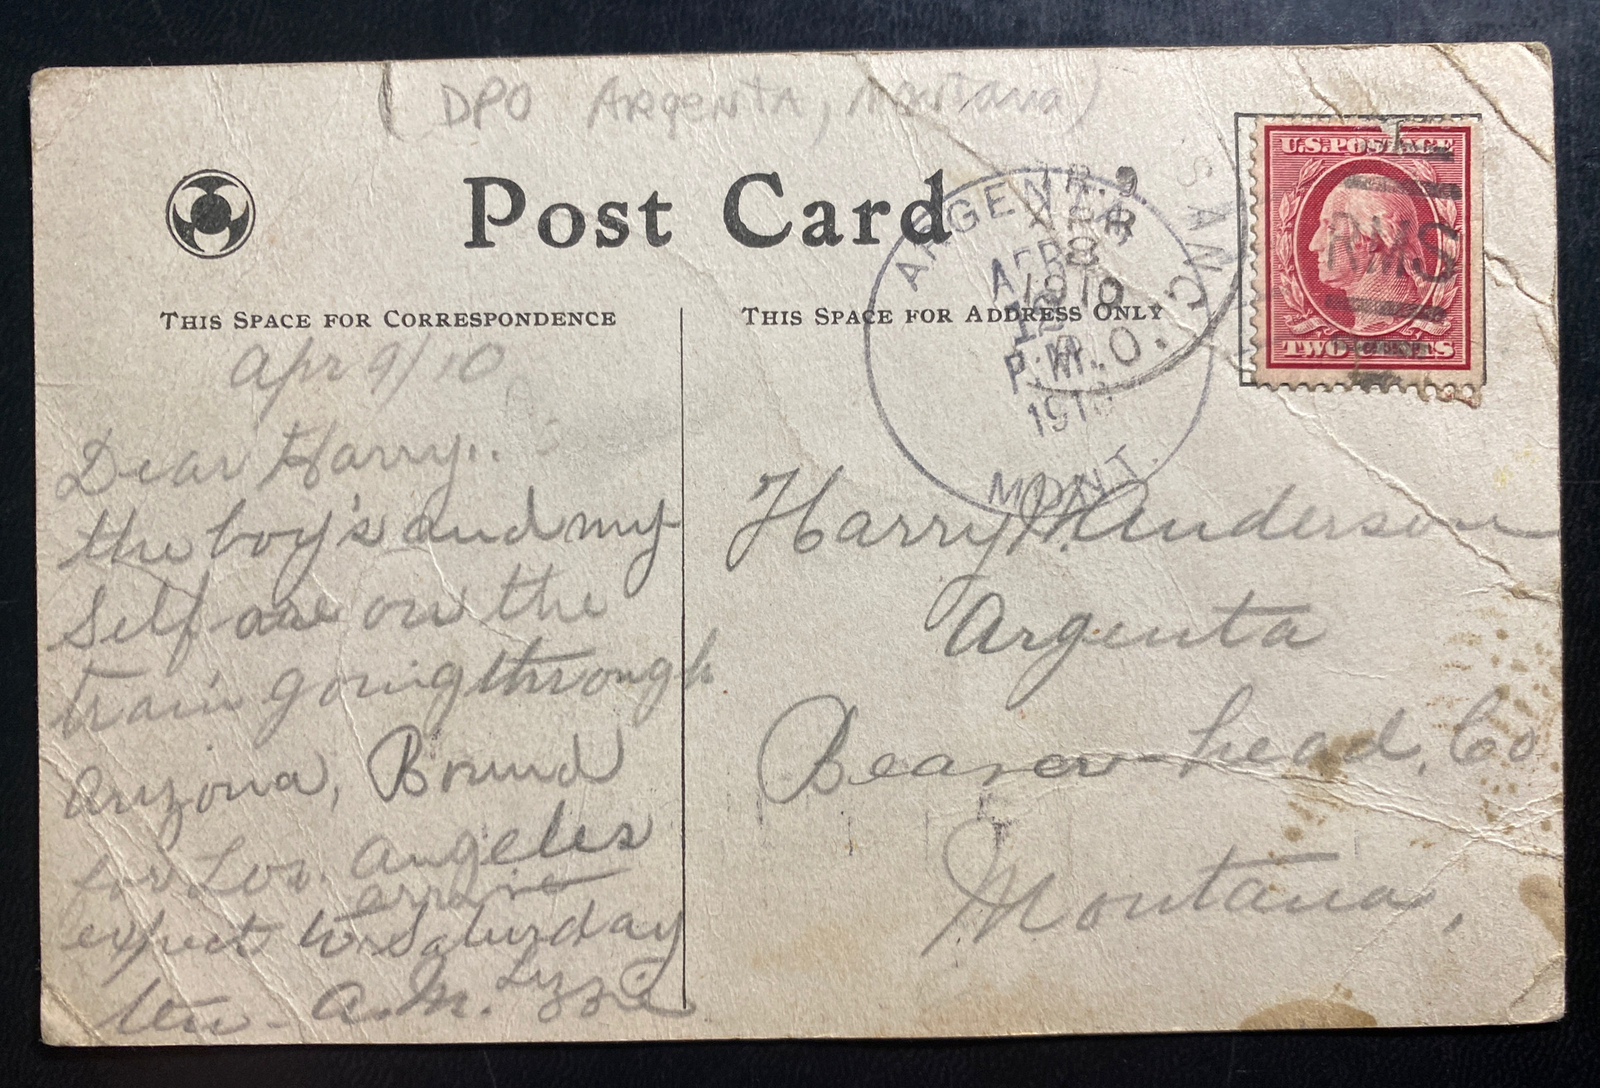 ( DPO Argenta, Montana )
Post Card
THIS SPACE FOR CORRESPONDENCE
THIS SPACE FOR ADDRESS ONLY
U.S. POSTAGE
RMS
TWO CENTS
ARGENTA
APR
12
P.M.
1910
MONT.
TR. 9
APR
8
1910
R.P.O.
Apr 9/10
Dear Harry..
the boy's and my
Self are on the
train going through
Arizona, Bound
for Los. Angeles
arrive
expect to Saturday
ten - A.M. Lizzie
Harry W. Anderson
Argenta
Beaver-head, Co
Montana,